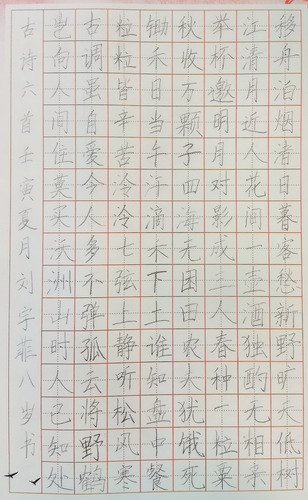 移舟泊烟渚日暮客愁新野旷天低树
江清月近人花间一壶酒独酌无相亲
举杯邀明月对影成三人春种一粒粟
秋收万颗子四海无闲田农夫犹饿死
锄禾日当午汗滴禾下土谁知盘中餐
粒粒皆辛苦泠泠七弦上静听松风寒
古调虽自爱今人多不弹孤云将野鹤
岂向人间住莫买沃洲山时人已知处
古诗六首壬寅夏月刘宇菲八岁书